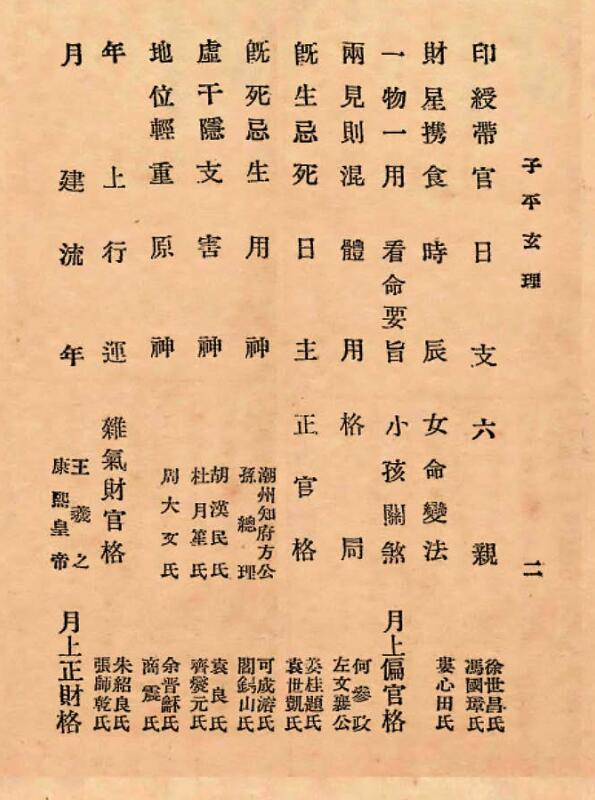 子平玄理
二
印綬帶官
日支
六親
徐世昌氏
馮國璋氏
財星携食
時辰
女命變法
婁心田氏
一物一用
看命要旨
小孩關煞
月上偏官格
兩見則混
體用
格局
何參政
左文襄公
旣生忌死
日主
正官格
姜桂題氏
袁世凱氏
旣死忌生
用神
潮州知府方公
孫總理
可成溶氏
閻錫山氏
虛干隱支
害神
胡漢民氏
杜月笙氏
袁良氏
齊燮元氏
地位輕重
原神
周大文氏
余晋龢氏
商震氏
年上
行運
雜氣財官格
朱紹良氏
張師乾氏
月建
流年
王羲之
康熙皇帝
月上正財格